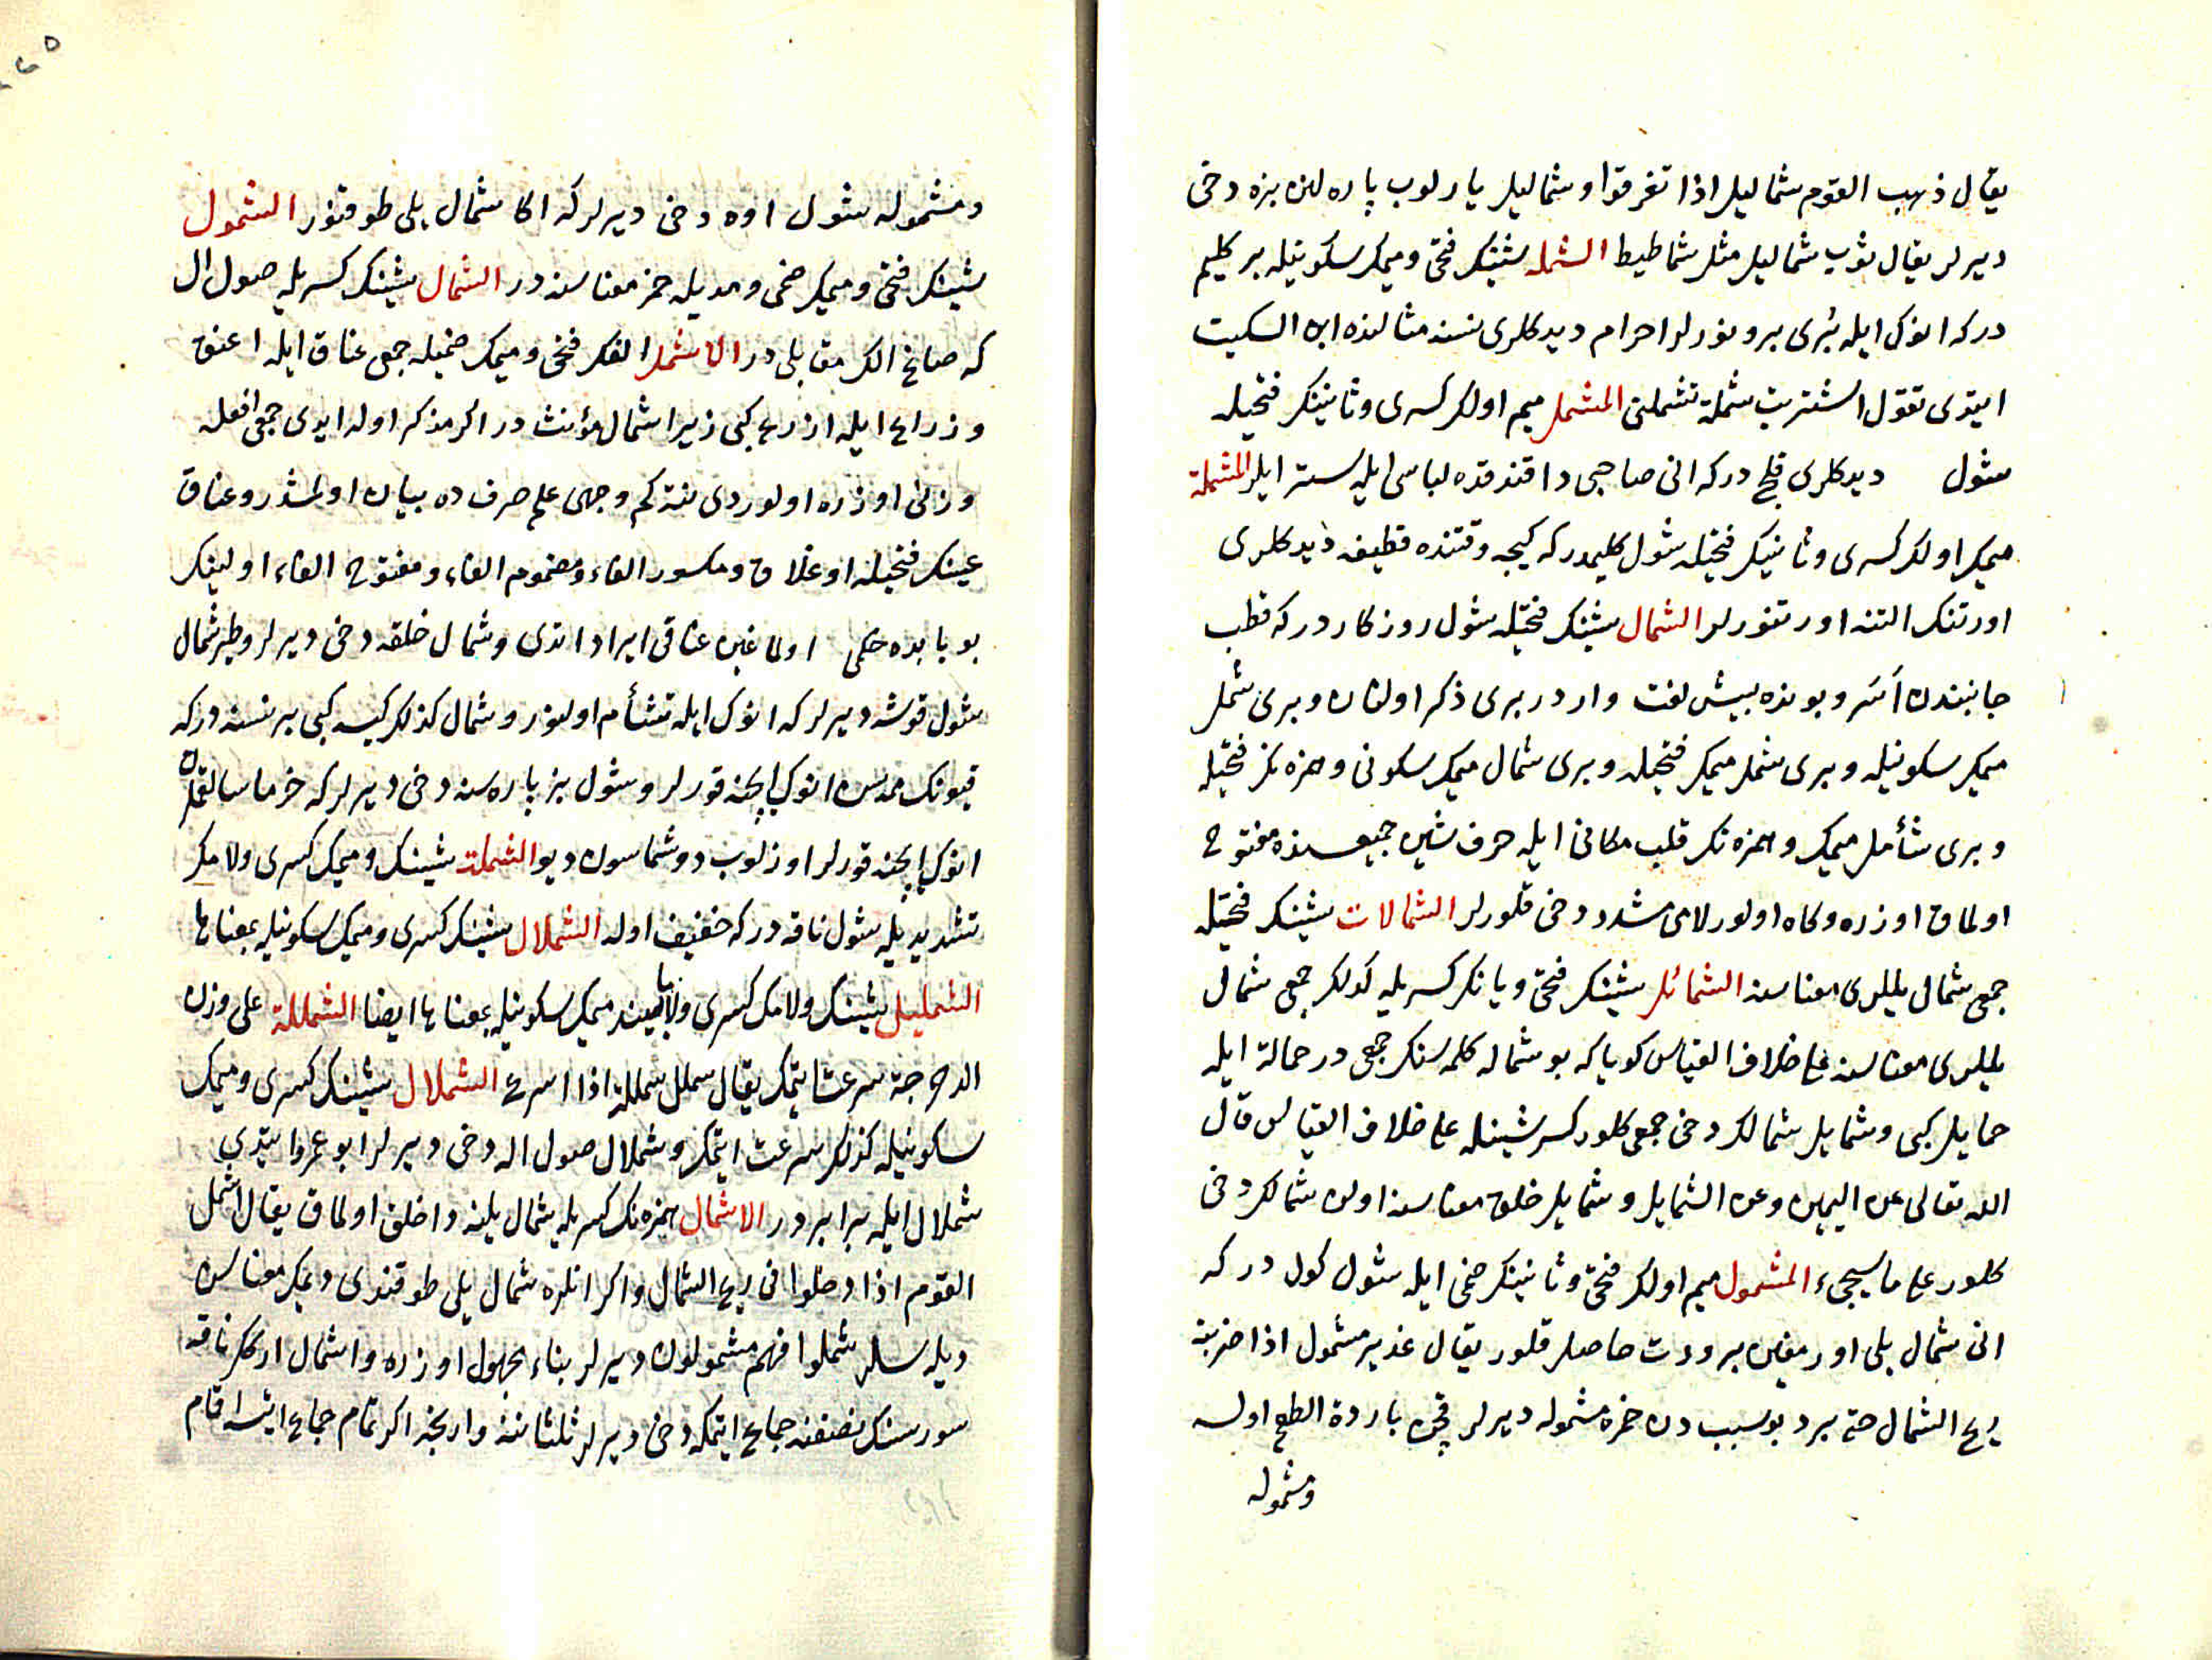 يقال ذهب القوم شماليل اذا تفرقوا وشماليل يارلوب پاره لنن بزه دخى
ديرلر يقال ثوب شماليل مثل شماطيط الشمله شينك فتحى وميمك سكونيله بر كليم
دركه انوك ايله برى بورنورلر احرام ديدكلرى نسنه مثالنده ابن السكيت
ايتدى تقول اشتريت شملة تشملنى المشمل ميم اولك كسرى وثانينك فتحيله
شول ديدكلرى قلج دركه انى صاحبى داقندقده لباسى ايله ستر ايلر المشملة
ميمك اولك كسرى وثانينك فتحيله شول كليمدركه كيجه وقتنده قطيفه ديدكلرى
اورتنك التنه اورتنورلر الشمال شينك فتحيله شول روزكار دركه قطب
جانبندن اسر وبونده بيش لغت واردر برى ذكر اولنان وبرى شمل
ميمك سكونيله وبرى شمل ميمك فتحيله وبرى شمأل ميمك سكونى وهمزه نك فتحيله
وبرى شأمل ميمك وهمزه نك قلب مكانى ايله حرف شين جميعسنده مفتوح
اولماق اوزره وكاه اولور لامى مشدد دخى قلورلر الشمالات شينك فتحيله
جمعى شمال يللرى معناسنه الشمائل شينك فتحى ويانك كسريله كذلك جمعى شمال
يللرى معناسنه على خلاف القياس كويا كه بو شماله كلمه سنك جمعى در حمالة ايله
حمايل كبى وشمايل شمالك دخى جمعى كلور كسر شينله على خلاف القياس قال
الله تعالى عن اليمين وعن الشمايل وشمايل خلق معناسنه اولن شمالك دخى
كلور على ما سيجىء المشمول ميم اولك فتحى وثانينك ضمى ايله شول كول دركه
انى شمال يلى اورمغين برودت حاصل قلور يقال غدير مشمول اذا ضربته
ريح الشمال حتى برد بو سبب دن خمره مشموله ديرلر قچن باردة الطعم اولسه
ومشموله
ومشموله شول اوه دخى ديرلركه اكا شمال يلى طوقنور الشمول
شينك فتحى وميمك ضمى ومديله خمر معناسنه در الشمال شينك كسريله صول ال
كه صاغ الك مقابلى در الاشمل الفك فتحى وميمك ضميله جمعى عناق ايله اعنق
وذراع ايله اذرع كبى زيرا شمال مؤنث در اكر مذكر اولدايدى جمعى افعله
وزنى اوزره اولوردى نته كم وجهى علم صرف ده بيان اولنمشدر وعناق
عينك فتحيله اوغلاق ومكسور الفاء ومضموم الفاء ومفتوح الفاء اولينك
بو بابده حكمى اولماغين عناقى ايراد اتدى وشمال خلقه دخى ديرلر وطير شمال
شول قوشه ديرلركه انوك ايله تشأم اولنور وشمال كذلك كيسه كبى بر نسنه دركه
قيونك ممه سن انوك ايچنه قورلر وشول بز پاره سنه دخى ديرلركه خرما سالقملرن
انوك ايچنه قورلر اوزلوب دوشماسون ديو الشملة شينك وميمك كسرى ولامك
تشديديله شول ناقه دركه خفيف اوله الشملال شينك كسرى وميمك سكونيله بمعناها
الشمليل شينك ولامك كسرى ميمك سكونيله بمعناها ايضا الشمللة على وزن
الدحرجة سرعت ايتمك يقال شملل شمللة اذا اسرع الشملال شينك كسرى وميمك
سكونيله كذلك سرعت ايتمك وشملال صول اله دخى ديرلر ابو عمرو ايتدى
شملال ايله برابر در الاشمال همزه نك كسريله شمال يلينه داخل اولماق يقال اشمل
القوم اذا دخلوا فى ريح الشمال واكر انلره شمال يلى طوقندى ديمك معناسن
ديله سلر شملوا فهم مشمولون ديرلر بناء مجهول اوزره واشمال اركك ناقه
سورسنك نصفنه جماع ايتمكه دخى ديرلر ثلثاننه وارنجه اكر تمام جماع ايتسه اقام